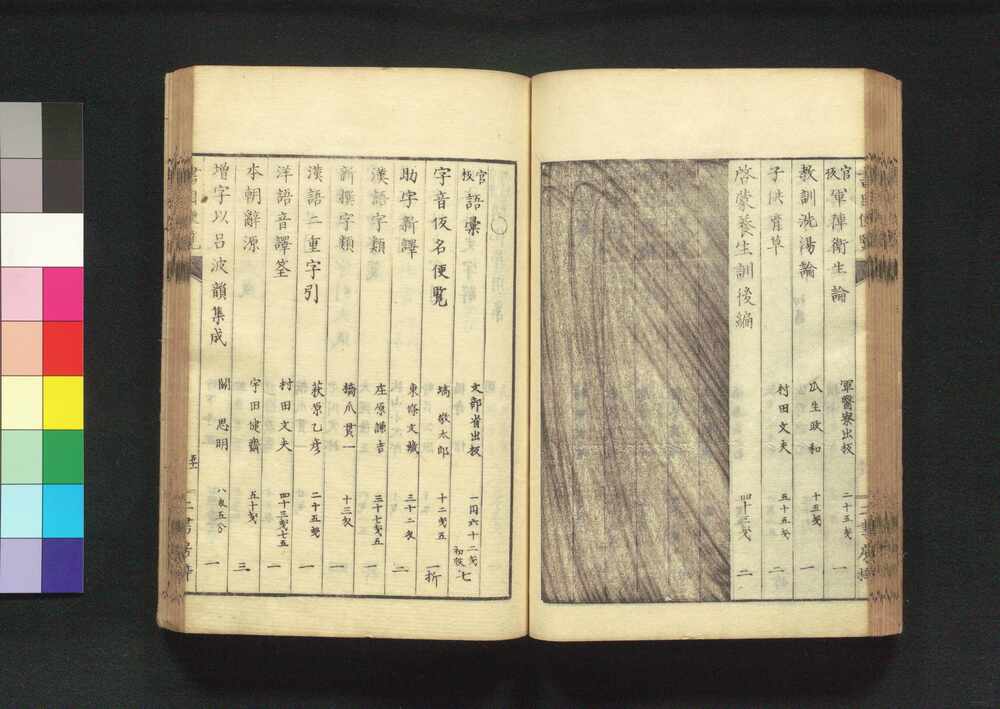 官板 軍陣衛生論 軍医寮出板 二十五戔 一
教訓洗湯論 瓜生政和 十五戔 一
子供育草 村田文夫 五十五戔 二
啓蒙養生訓後編 四十二戔 二
官板 語彙 文部省出板 一円六十二戔 初帙 七
字音仮名便覧 塙敬太郎 十二戔五 一折
助字新譯 東條文蔵 三十二戔 二
漢語字類 庄原謙吉 三十七戔五 一
新撰字類 橋爪貫一 十三匁 一
漢語二重字引 萩原乙彦 二十五戔 一
洋語音譯筌 村田文夫 四十三戔七五 一
本朝辭源 宇田健齋 五十戔 三
増字以呂波韻集成 關思明 八匁五分 一